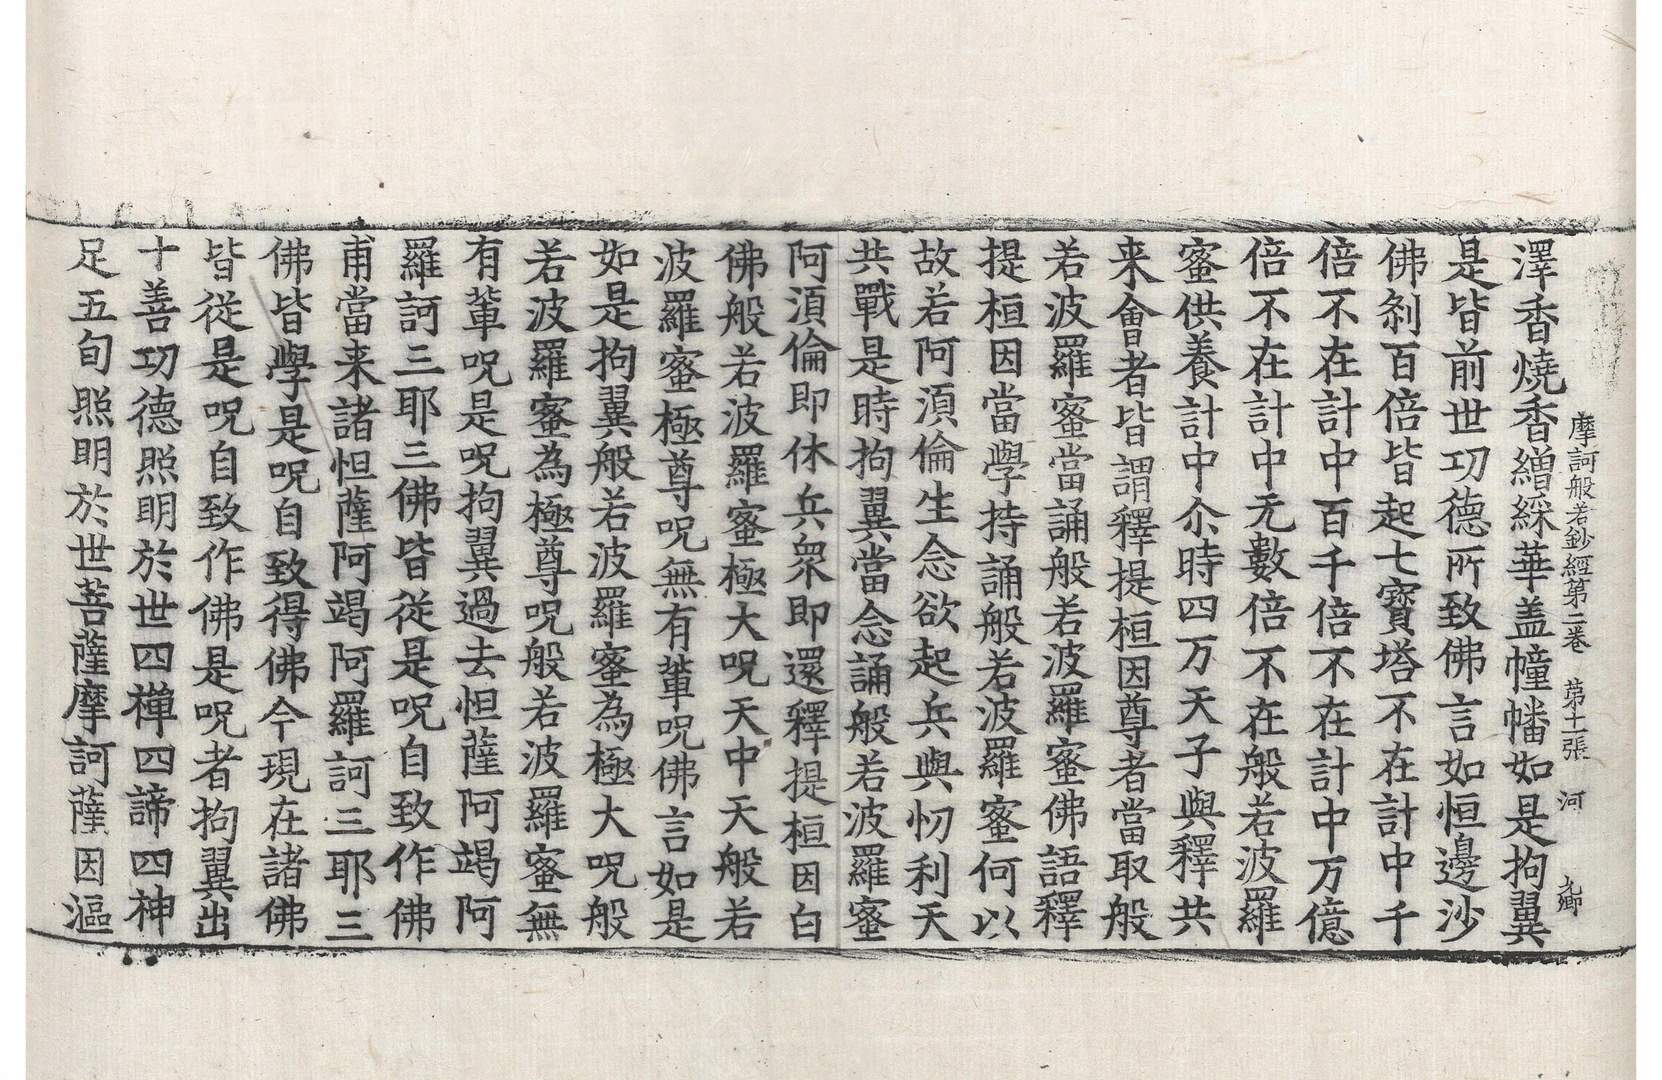 摩訶般若鈔經第二卷 第十一張 河
澤香燒香繒綵華盖幢幡如是拘翼
是皆前世功德所致佛言如恒邊沙
佛剎百倍皆起七寶塔不在計中千
倍不在計中百千倍不在計中万億
倍不在計中无數倍不在般若波羅
蜜供養計中尒時四万天子與釋共
来會者皆謂釋提桓因尊者當取般
若波羅蜜當誦般若波羅蜜佛語釋
提桓因當學持誦般若波羅蜜何以
故若阿湏倫生念欲起兵與忉利天
共戰是時拘翼當念誦般若波羅蜜
阿湏倫即休兵衆即還釋提桓因白
佛般若波羅蜜極大呪天中天般若
波羅蜜極尊呪無有軰呪佛言如是
如是拘翼般若波羅蜜為極大呪般
若波羅蜜為極尊呪般若波羅蜜無
有軰呪是呪拘翼過去怛薩阿竭阿
羅訶三耶三佛皆従是呪自致作佛
甫當来諸怛薩阿竭阿羅訶三耶三
佛皆學是呪自致得佛今現在諸佛
皆従是呪自致作佛是呪者拘翼出
十善功德照明於世四禅四諦四神
足五旬照明於世菩薩摩訶薩因漚